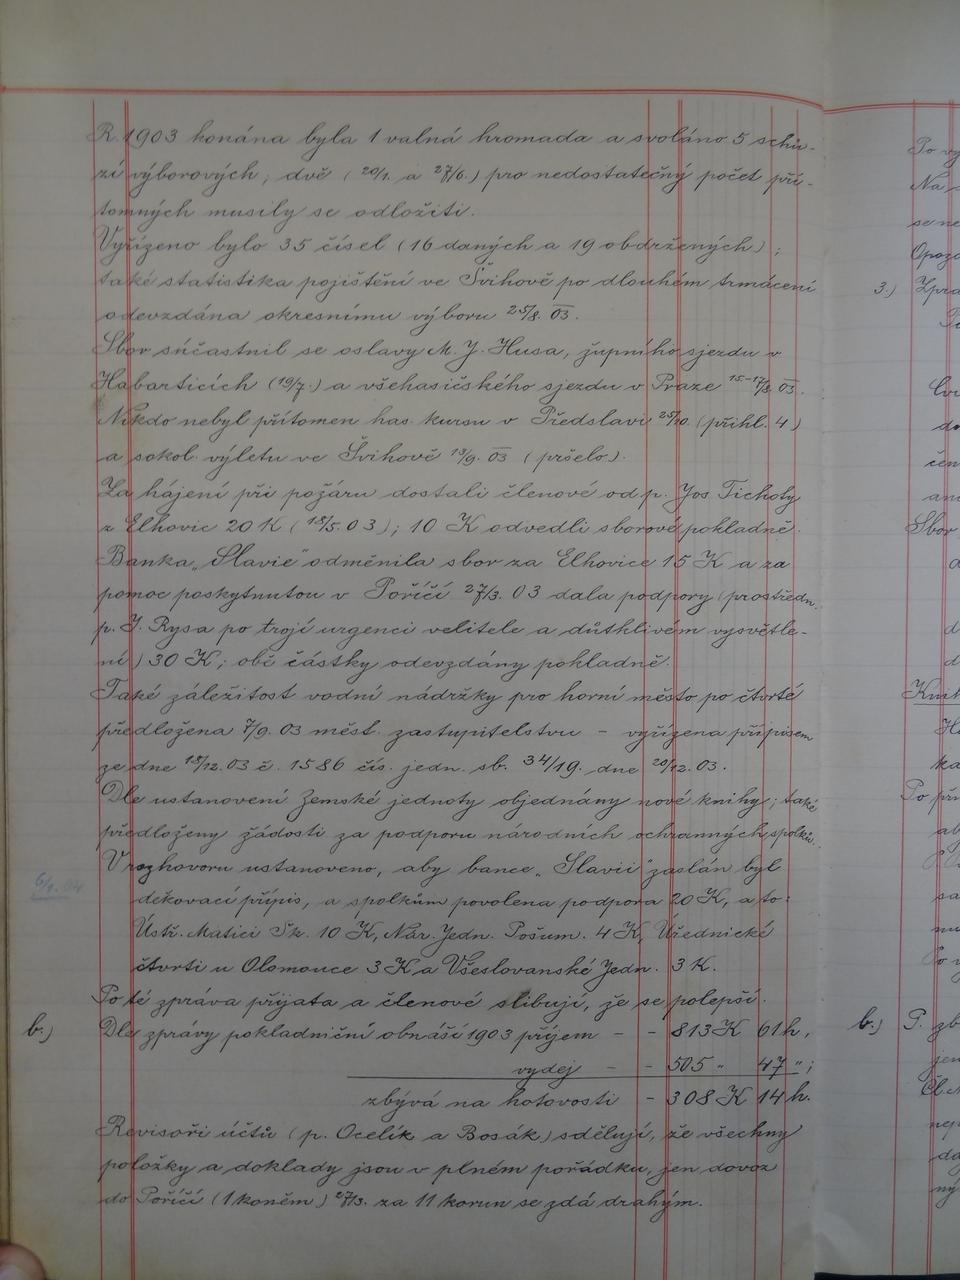 R. 1903 konána byla 1 valná hromada a svoláno 5 schů-
zí výborových; dvě (20/1. a 27/6.) pro nedostatečný počet pří-
tomných musily se odložiti.
Vyřízeno bylo 35 čísel (16 daných a 19 obdržených);
také statistika pojištění ve Švihově po dlouhém trmácení
odevzdána okresnímu výboru 25/8. 03.
Sbor súčastnil se oslavy M. J. Husa, župního sjezdu v
Habarticích (19/7.) a všehasičského sjezdu v Praze 15-17/8. 03.
Nikdo nebyl přítomen has. kursu v Předslavi 25/10. (přihl. 4)
a sokol. výletu ve Švihově 13/9. 03 (pršelo).
Za hájení při požáru dostali členové od p. Jos Tichoty
z Elhovic 20 K (18/5. 03); 10 K odvedli sborové pokladně.
Banka „Slavie" odměnila sbor za Elhovice 15 K a za
pomoc poskytnutou v Poříčí 27/3. 03 dala podpory (prostředn.
p. J. Rysa po trojí urgenci velitele a důtklivém vysvětle-
ní) 30 K; obě částky odevzdány pokladně.
Také záležitost vodní nádržky pro horní město po čtvrté
předložena 7/9. 03 měst. zastupitelstvu – vyřízena přípisem
ze dne 18/12. 03 č. 1586 čís. jedn. sb. 34/19. dne 20/12. 03.
Dle ustanovení Zemské jednoty objednány nové knihy; také
předloženy žádosti za podporu národních ochranných spolků.
V rozhovoru ustanoveno, aby bance „Slavii" zaslán byl
děkovací přípis, a spolkům povolena podpora 20 K, a to:
Ústř. Matici Šk. 10 K, Nár. Jedn. Pošum. 4 K, Úřednické
čtvrti u Olomouce 3 K a Všeslovanské Jedn. 3 K.
Po té zpráva přijata a členové slibují, že se polepší.
b.) Dle zprávy pokladniční obnáší 1903 příjem – – 813 K 61 h,
vydej – – 505 „ 47 „;
zbývá na hotovosti – 308 K 14 h.
Revisoři účtů (p. Ocelík a Bosák) sdělují, že všechny
položky a doklady jsou v plném pořádku, jen dovoz
do Poříčí (1 koněm) 27/3. za 11 korun se zdá drahým.
3.)
b.)